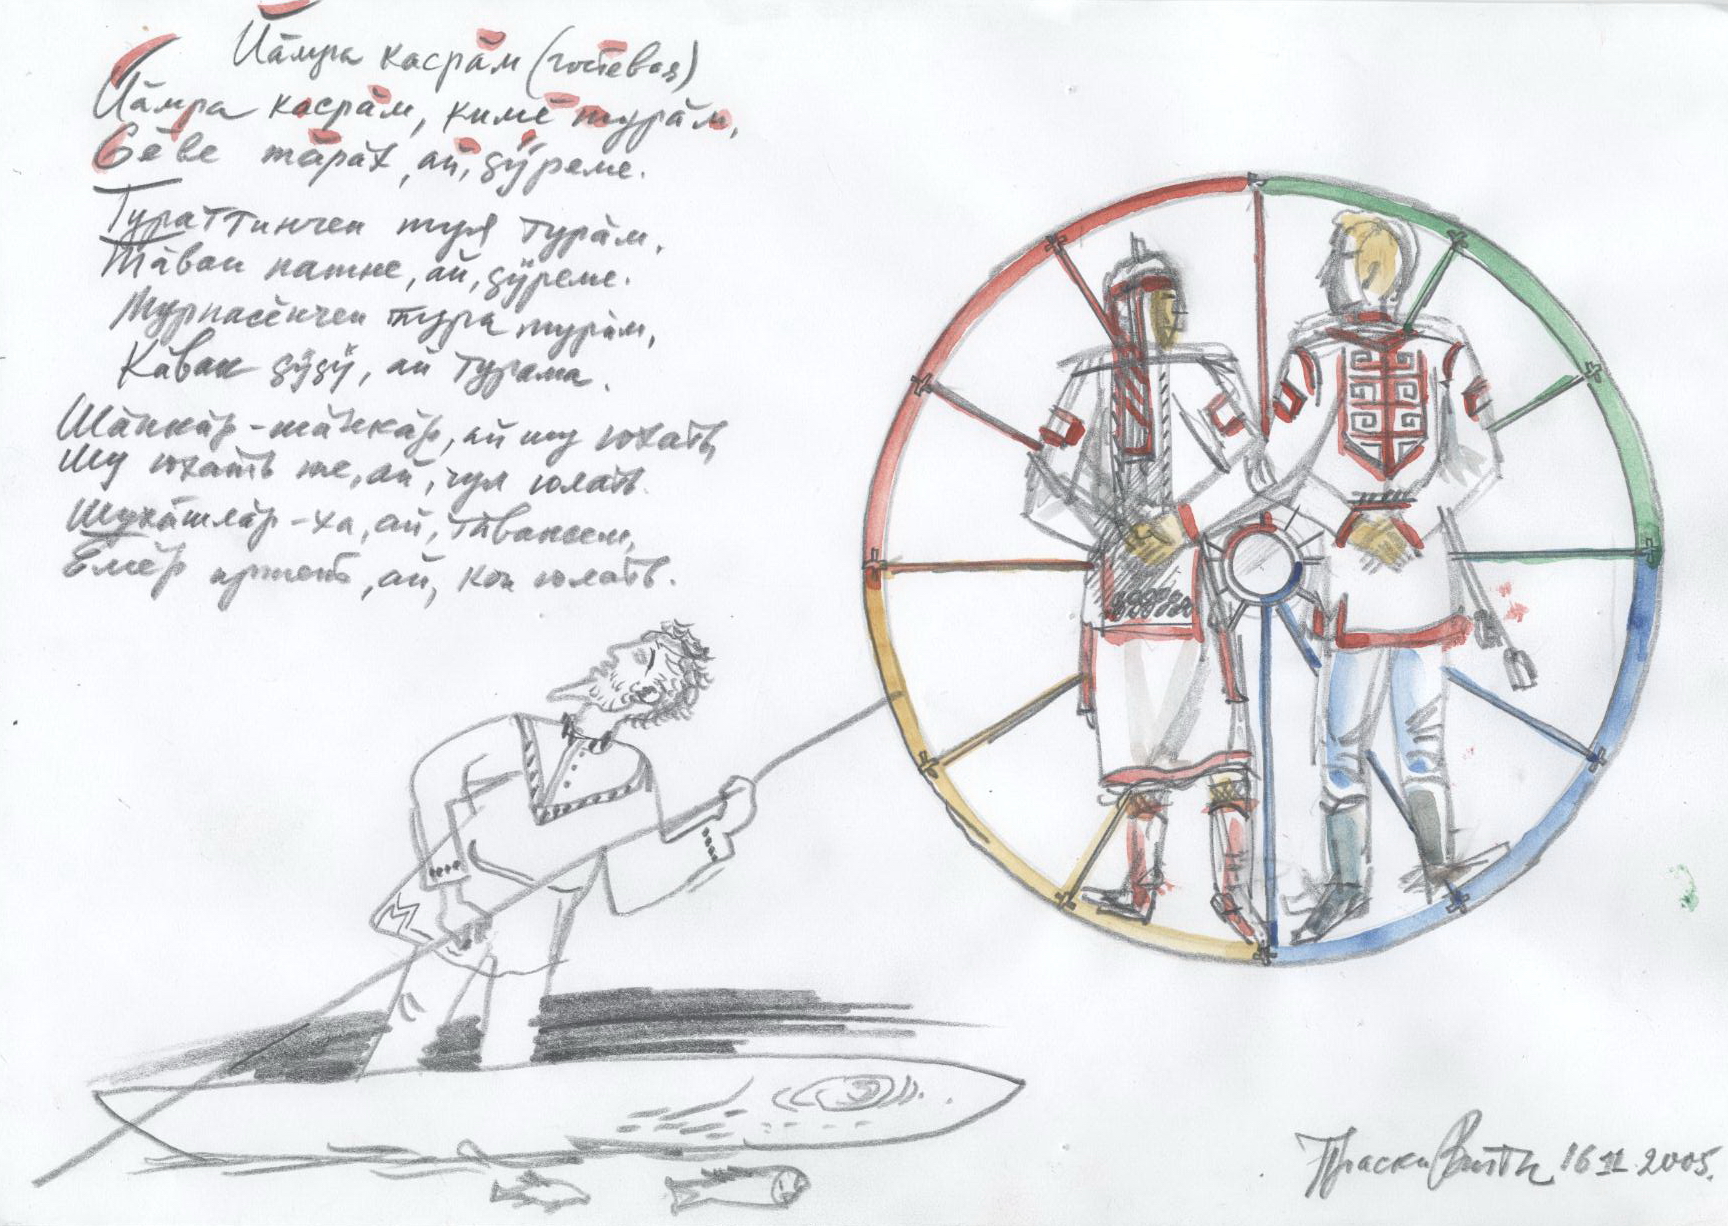 Йӑмра касрӑм (гостевая)
Йӑмра касрӑм, кимӗ турӑм,
Ҫӗве тӑрӑх, ай, ҫӳреме.
Тураттинчен туя турӑм,
Тӑван патне, ай, ҫӳреме.
Турпасӗнчен тура турӑм,
Кӑвак ҫӳҫӳ, ай турама.
Шӑнкӑр-шӑнкӑр, ай шу юхать,
Шу юхать те, ай, чул юлать.
Шухӑшлӑр-ха, ай, тӑвансем,
Ӗмӗр иртет, ай, кон юлать.
Праски Витти 16 11 2005.